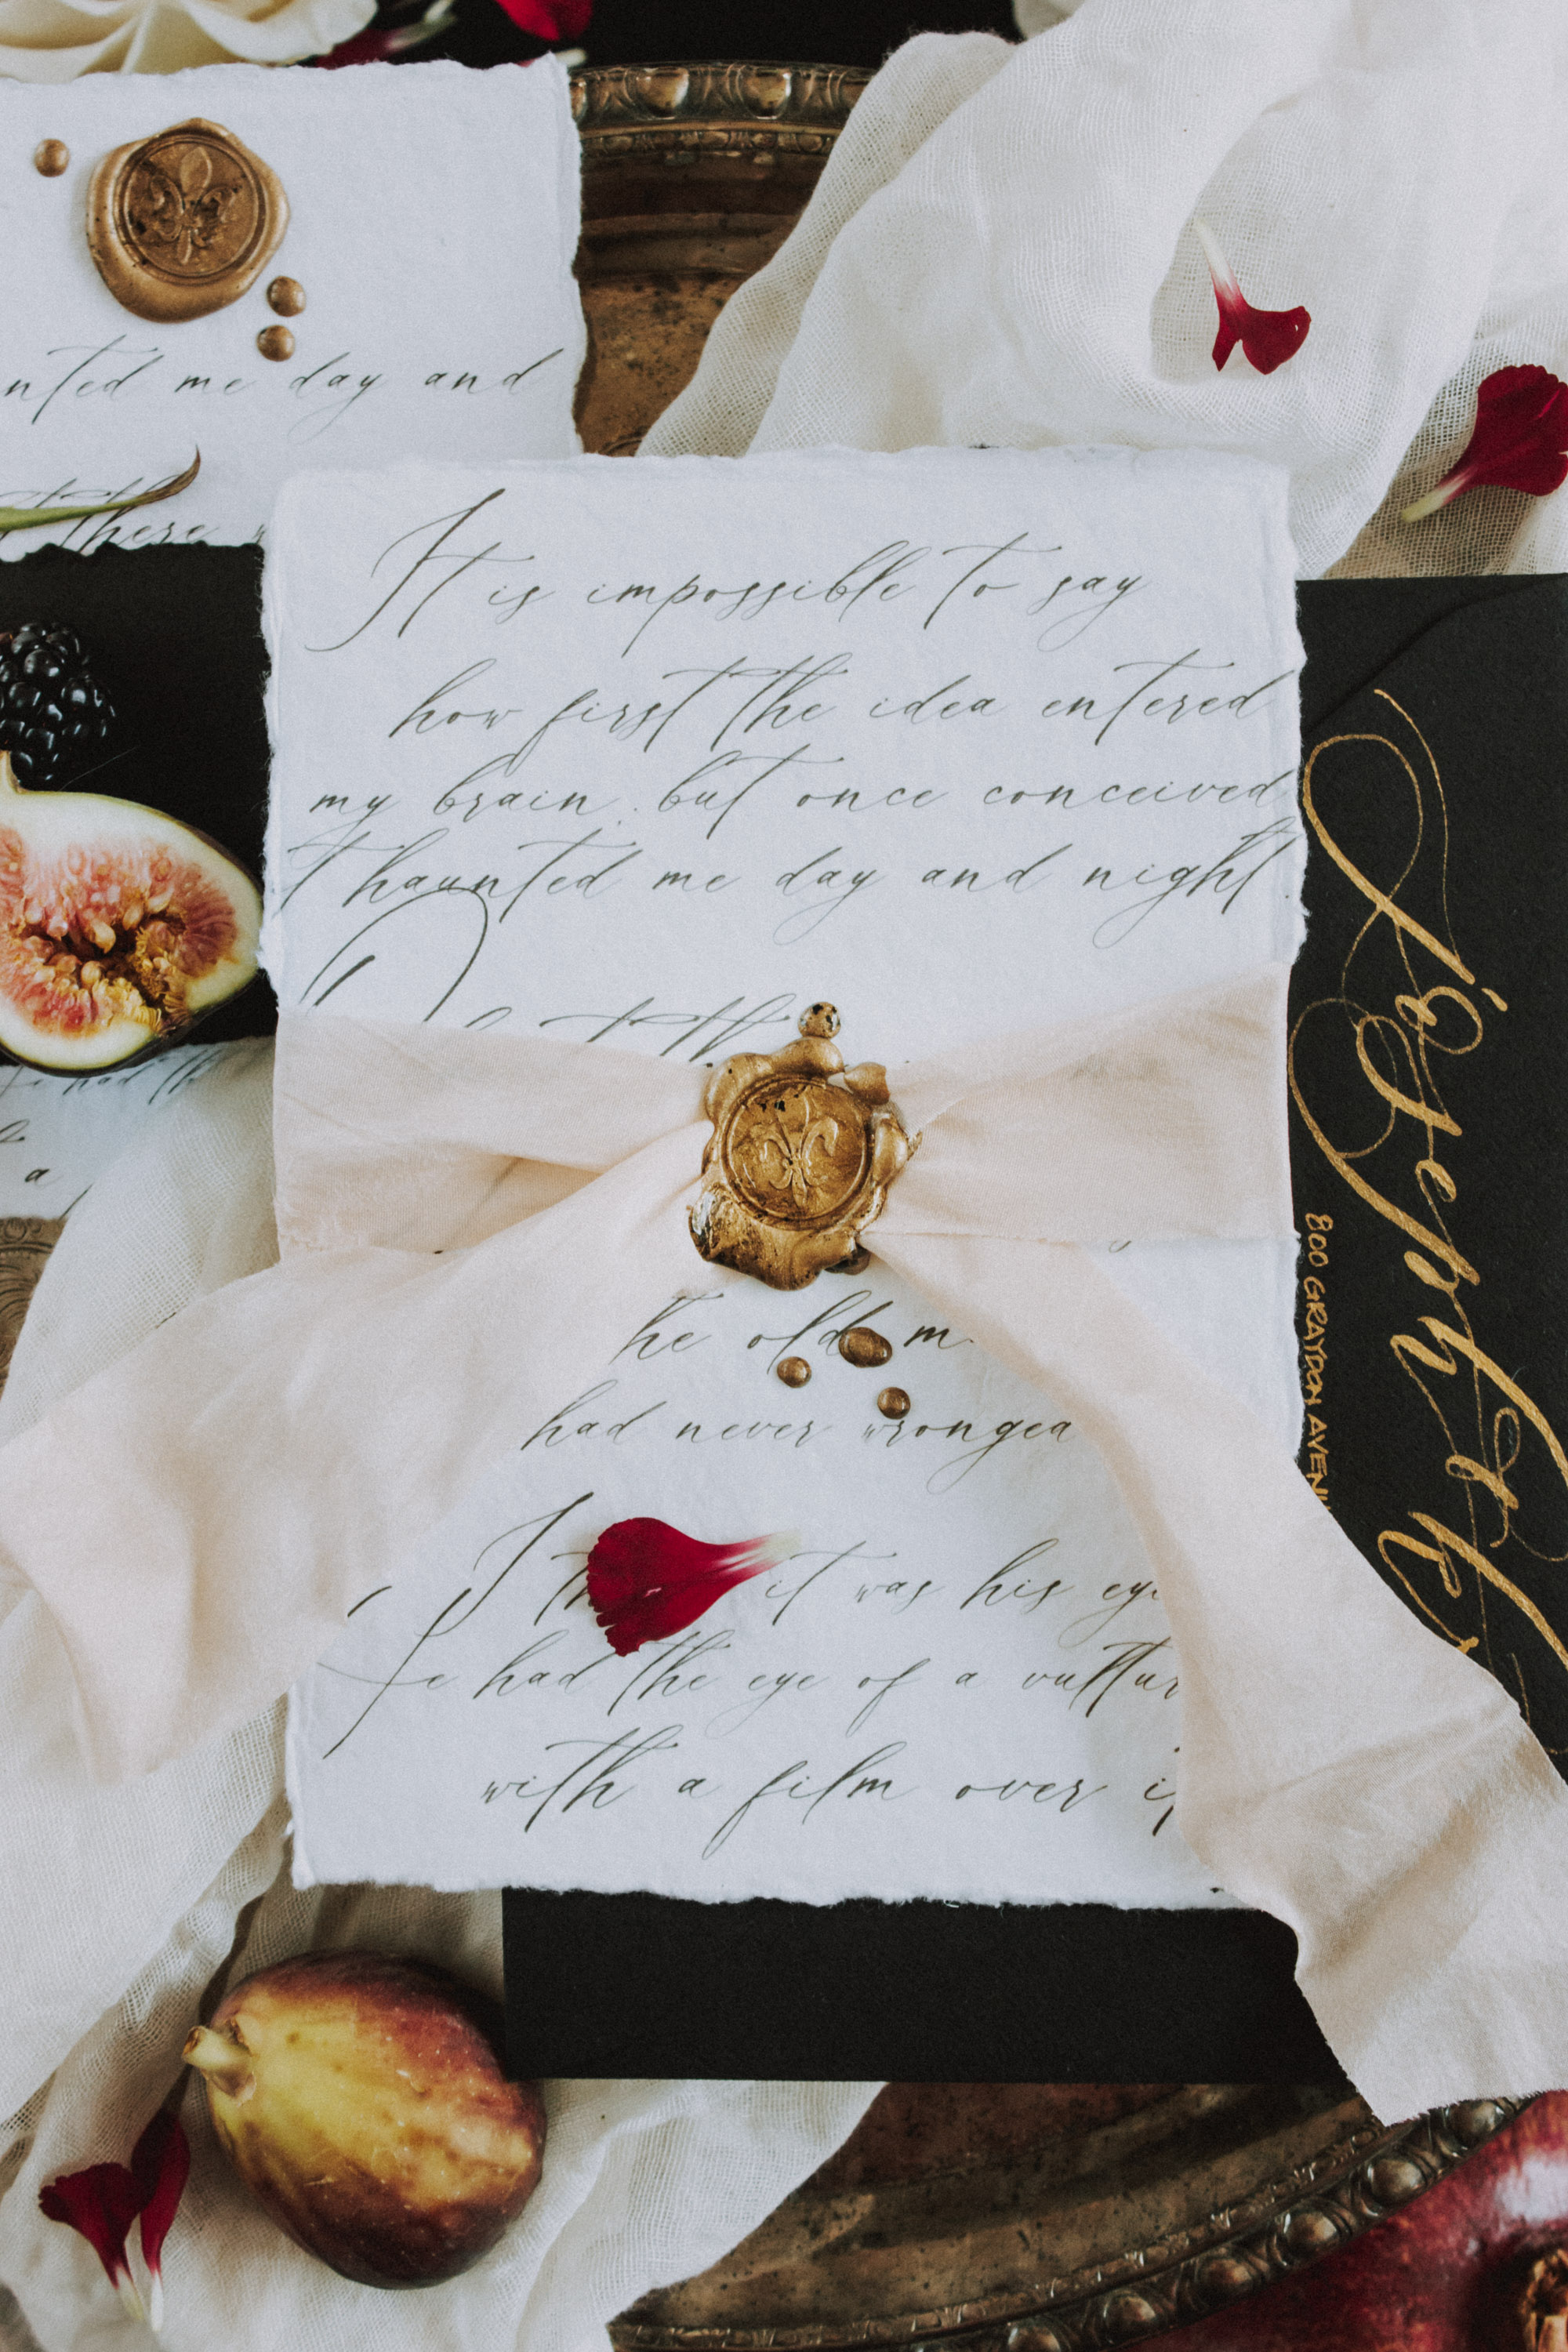 nted me day and
there
It is impossible to say
how first the idea entered
my brain. but once conceived
t haunted me day and night.
he old m
had never wronged
I it was his eye
e had the eye of a vultur
with a film over it
had th
a
Joseph
800 GRAYDON AVENU